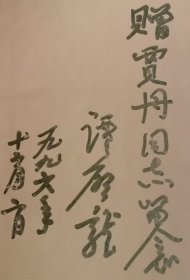 赠贾丹同志留念
谭启龙
一九九六年
十二月